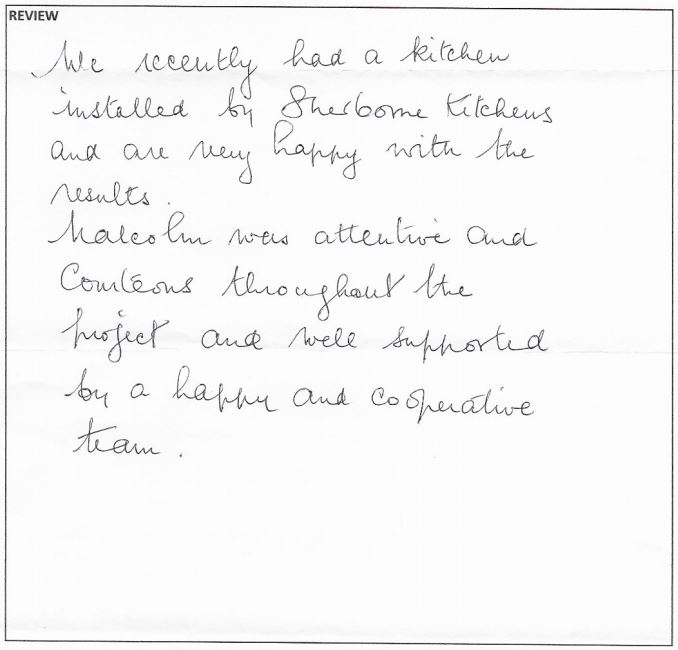 REVIEW
We recently had a kitchen
installed by Sherborne Kitchens
and are very happy with the
results.
Malcolm was attentive and
Courteous throughout the
project and well supported
by a happy and cooperative
team.